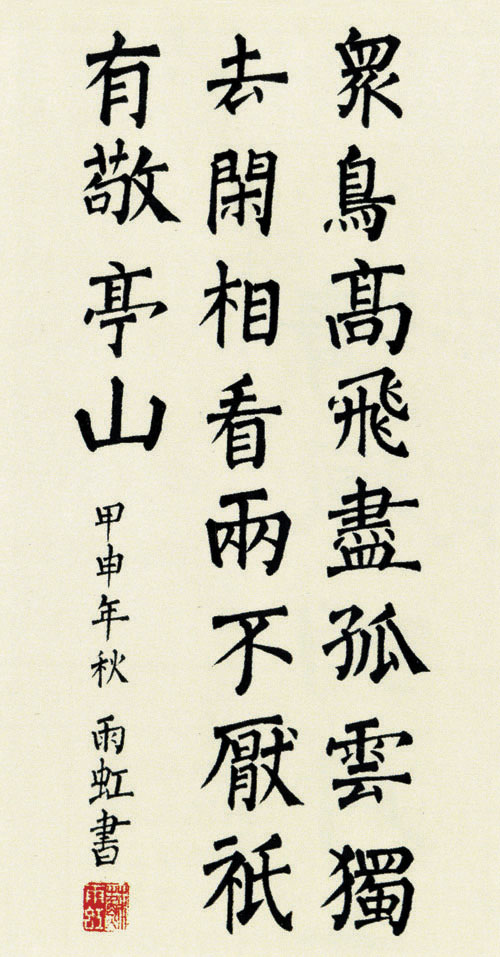 眾鳥髙飛盡孤雲獨
去閑相看兩不厭祇
有敬亭山 甲申年秋 雨虹書
雨虹